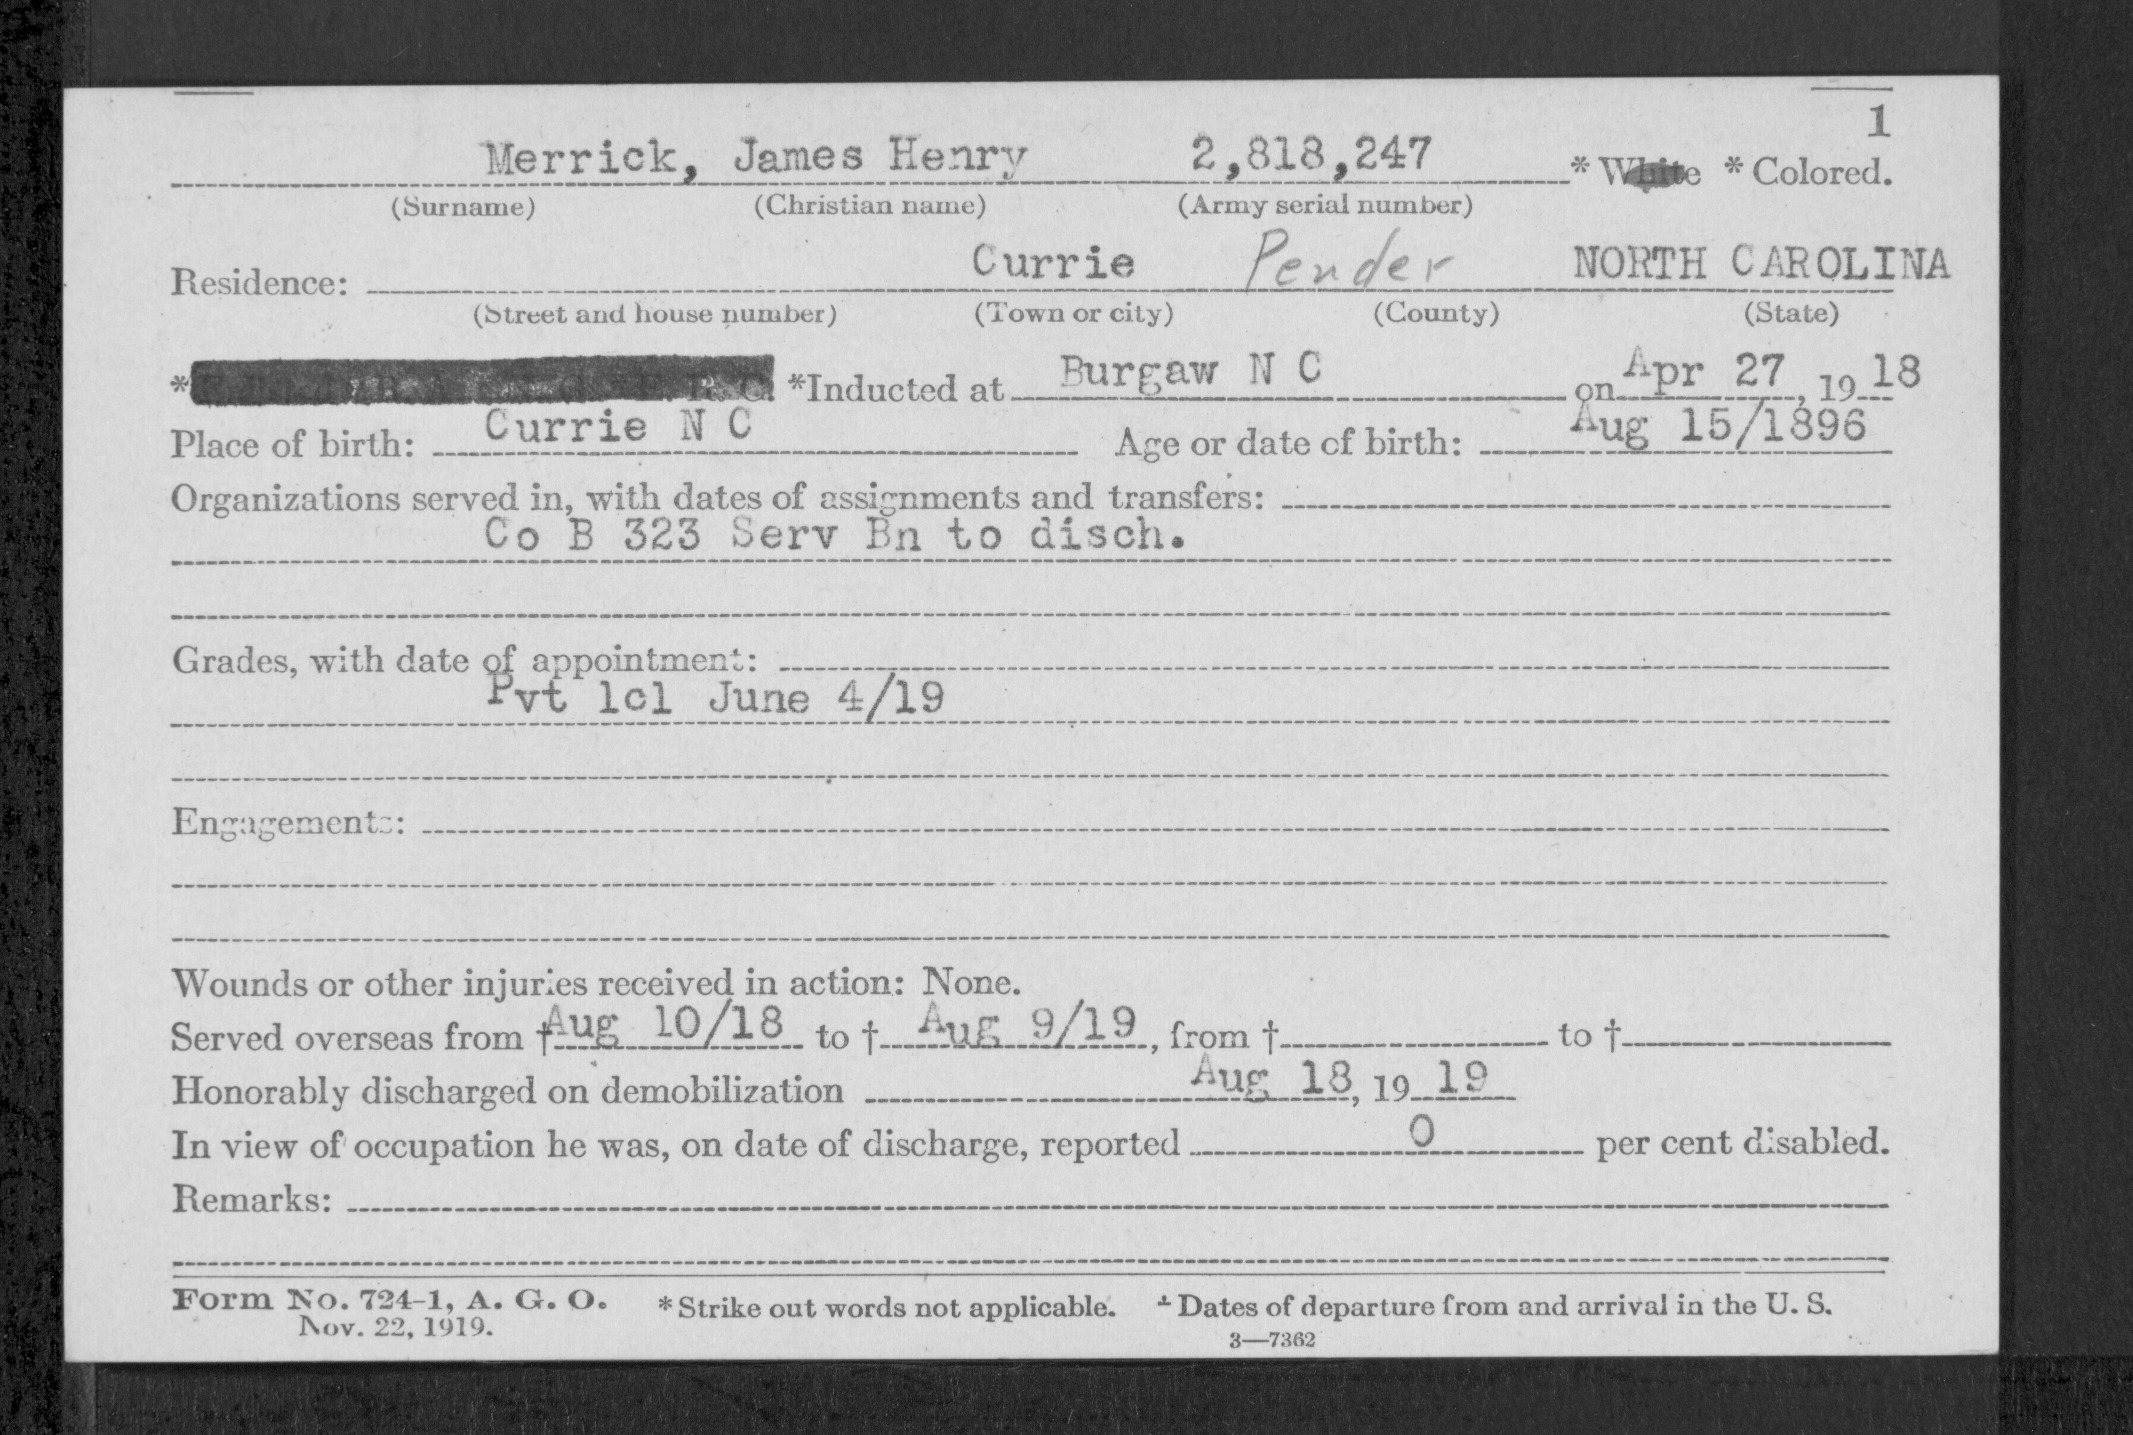 1
Merrick, James Henry 2,818,247 * White * Colored.
(Surname) (Christian name) (Army serial number)
Residence: Currie Pender NORTH CAROLINA
(Street and house number) (Town or city) (County) (State)
* R. C. *Inducted at Burgaw N C on Apr 27, 19 18
Place of birth: Currie N C Age or date of birth: Aug 15/1896
Organizations served in, with dates of assignments and transfers:
Co B 323 Serv Bn to disch.
Grades, with date of appointment:
Pvt 1cl June 4/19
Engagements:
Wounds or other injuries received in action: None.
Served overseas from † Aug 10/18 to † Aug 9/19, from † to †
Honorably discharged on demobilization Aug 18, 19 19
In view of occupation he was, on date of discharge, reported 0 per cent disabled.
Remarks:
Form No. 724-1, A. G. O. *Strike out words not applicable. † Dates of departure from and arrival in the U. S.
Nov. 22, 1919. 3—7362